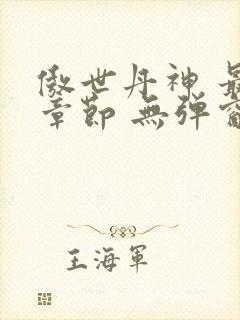 傲世丹神 最
章節 無彈窗
王海軍